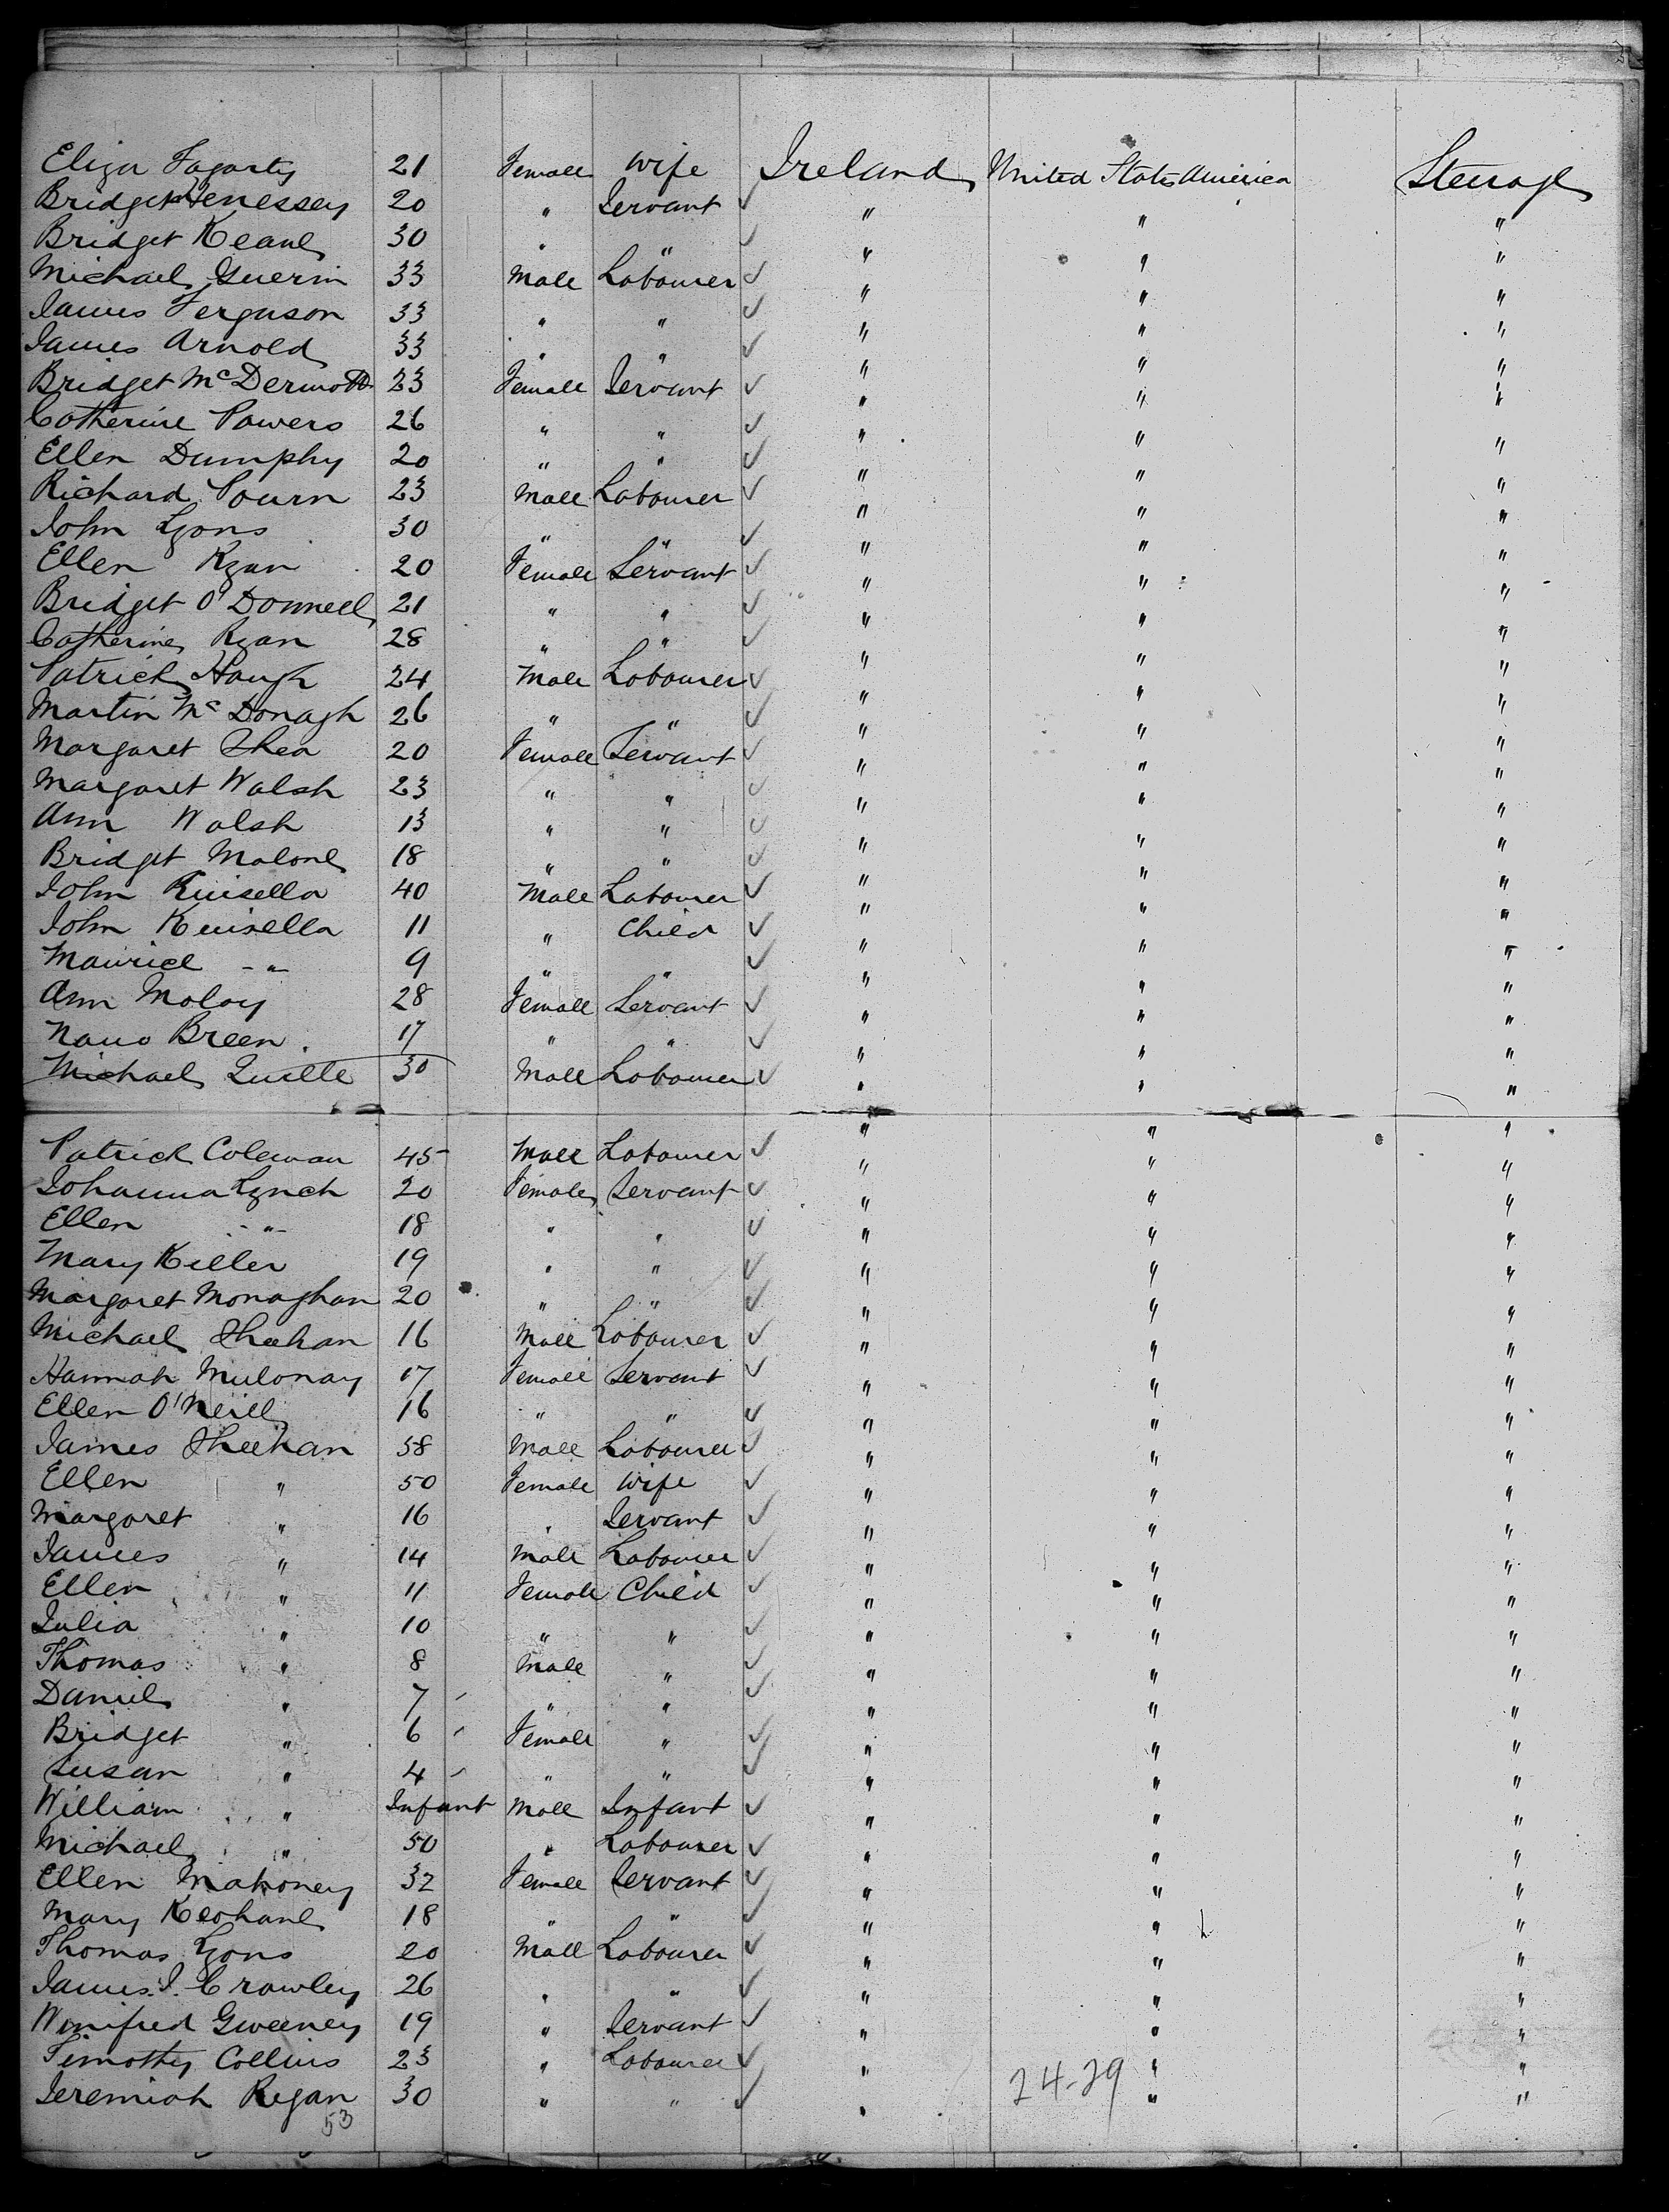 Eliza Fagarty 21 Female Wife Ireland United States America Steerage
Bridget Henessey 20 " Servant " " "
Bridget Keane 30 " " " " "
Michael Guerin 33 Male Labourer " " "
James Ferguson 33 " " " " "
James Arnold 33 " " " " "
Bridget McDermott 23 Female Servant " " "
Catherine Powers 26 " " " " "
Ellen Dumphy 20 " " " " "
Richard Pourn 23 Male Labourer " " "
John Lyons 30 " " " " "
Ellen Ryan 20 Female Servant " " "
Bridget O'Donnell 21 " " " " "
Catherine Ryan 28 " " " " "
Patrick Haugh 24 Male Labourer " " "
Martin Mc Donagh 26 " " " " "
Margaret Shea 20 Female Servant " " "
Margaret Walsh 23 " " " " "
Ann Walsh 13 " " " " "
Bridget Malone 18 " " " " "
John Kinsella 40 Male Labourer " " "
John Kinsella 11 " Child " " "
Maurice " 9 " " " " "
Ann Moloy 28 Female Servant " " "
Nano Breen 17 " " " " "
Michael Quille 30 Male Labourer " " "
Patrick Coleman 45 Male Labourer " " "
Johanna Lynch 20 Female Servant " " "
Ellen " 18 " " " " "
Mary Keller 19 " " " " "
Margaret Monaghan 20 " " " " "
Michael Sheehan 16 Male Labourer " " "
Hannah Mulonay 17 Female Servant " " "
Ellen O'Neill 16 " " " " "
James Sheehan 58 Male Labourer " " "
Ellen " 50 Female Wife " " "
Margaret " 16 " Servant " " "
James " 14 Male Labourer " " "
Ellen " 11 Female Child " " "
Julia " 10 " " " " "
Thomas " 8 Male " " " "
Daniel " 7 " " " " "
Bridget " 6 Female " " " "
Susan " 4 " " " " "
William " Infant Male Infant " " "
Michael " 50 " Labourer " " "
Ellen Mahoney 32 Female Servant " " "
Mary Keohane 18 " " " " "
Thomas Lyons 20 Male Labourer " " "
James J. Crowley 26 " " " " "
Winifred Sweeney 19 " Servant " " "
Timothy Collins 23 " Labourer " " "
Jeremiah Regan 30 " " " 24-29 " "
53